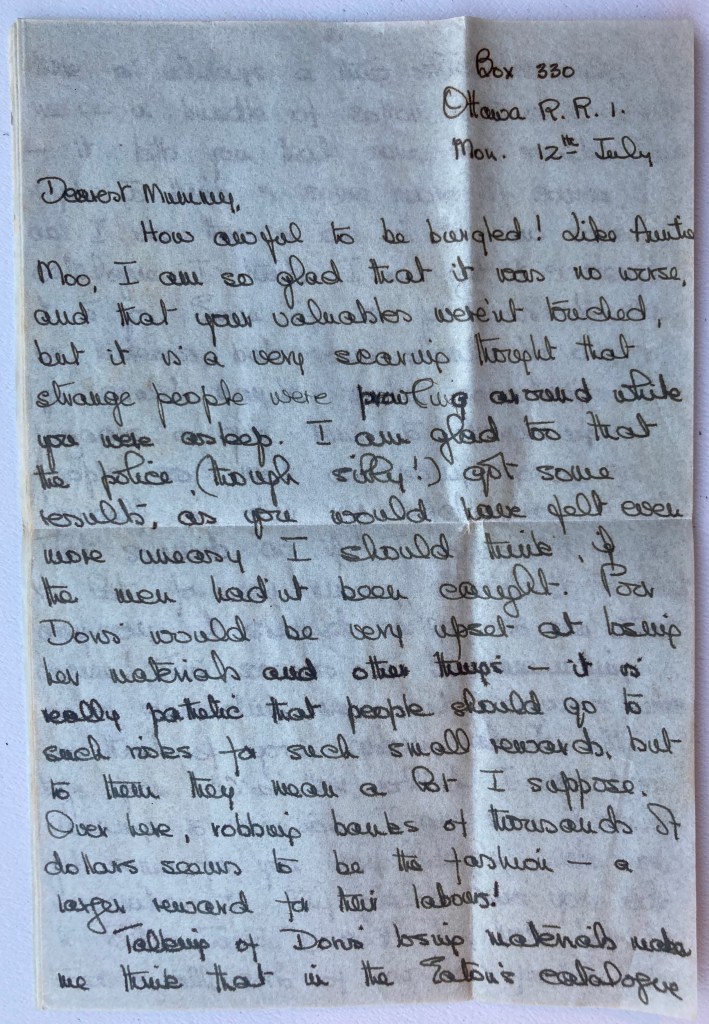 Box 330
Ottawa R.R.1.
Mon. 12th July
Dearest Mummy,
How awful to be burgled! Like Auntie
Moo, I am so glad that it was no worse,
and that your valuables were'nt touched,
but it is a very scaring thought that
strange people were prowling around while
you were asleep. I am glad too that
the police (though silly!) got some
results, as you would have felt even
more uneasy I should think, if
the men had'nt been caught. Poor
Doris would be very upset at losing
her materials and other things — it is
really pathetic that people should go to
such risks for such small rewards, but
to them they mean a lot I suppose.
Over here, robbing banks of thousands of
dollars seems to be the fashion — a
larger reward for their labours!
Talking of Doris' losing materials makes
me think that in the Eaton's catalogue